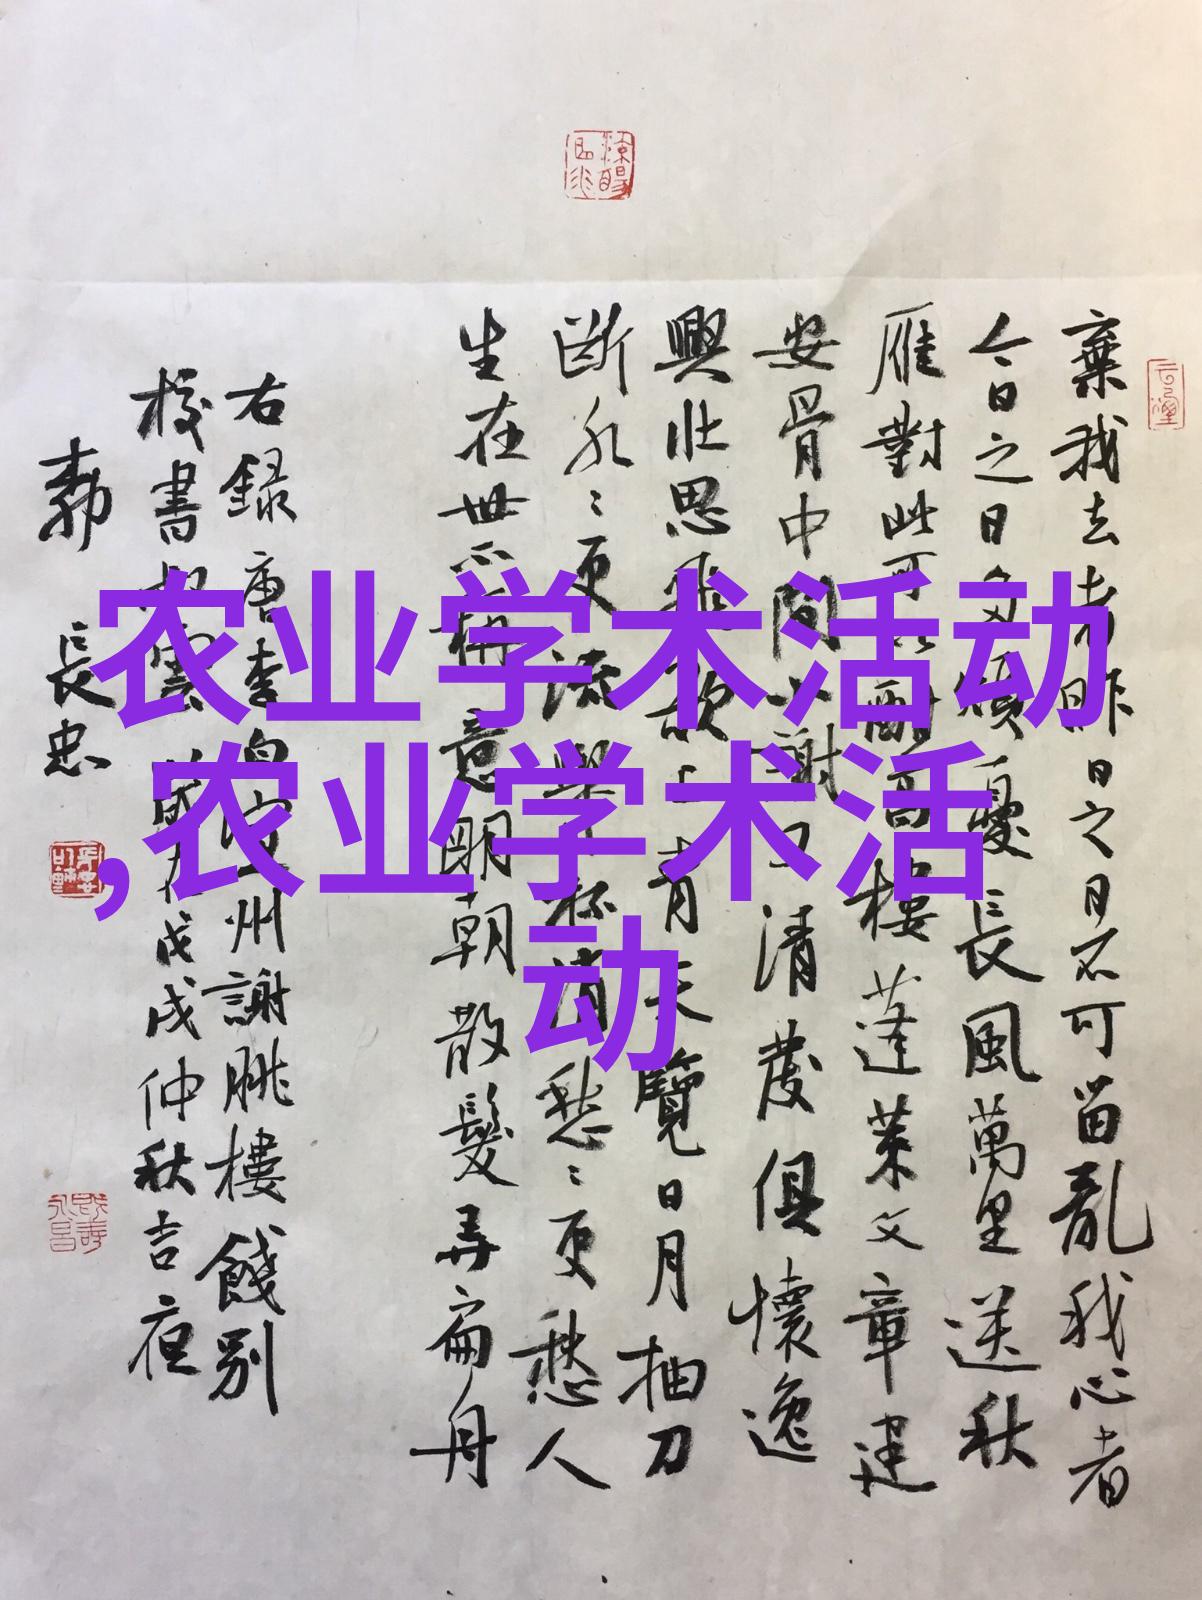 农业学术活动
,农业学术活
动
棄我去者昨日之日不可留亂我心者
今日之日多煩憂長風萬里送秋
雁對此可以酣高樓蓬萊文章建
安骨中間小謝又清發俱懷逸
興壯思飛欲上青天覽日月抽刀
斷水〻更流舉杯消愁〻更愁人
生在世不稱意明朝散髮弄扁舟
右録唐李白宣州謝朓樓餞別
校書叔雲歲在戊戌仲秋吉夜
長忠